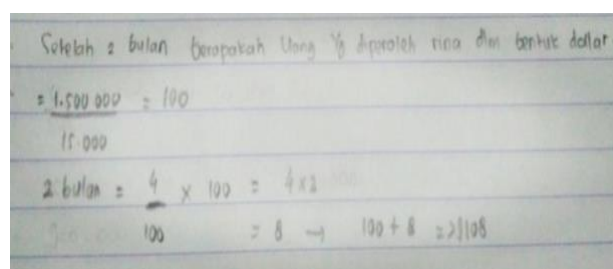 Setelah 2 bulan berapakah Uang Yg diperoleh rina dlm bentuk dollar
= 1.500 000 = 100
15.000
2 bulan = 4 × 100 = 4 x 2
100 = 8 → 100 + 8 => $108